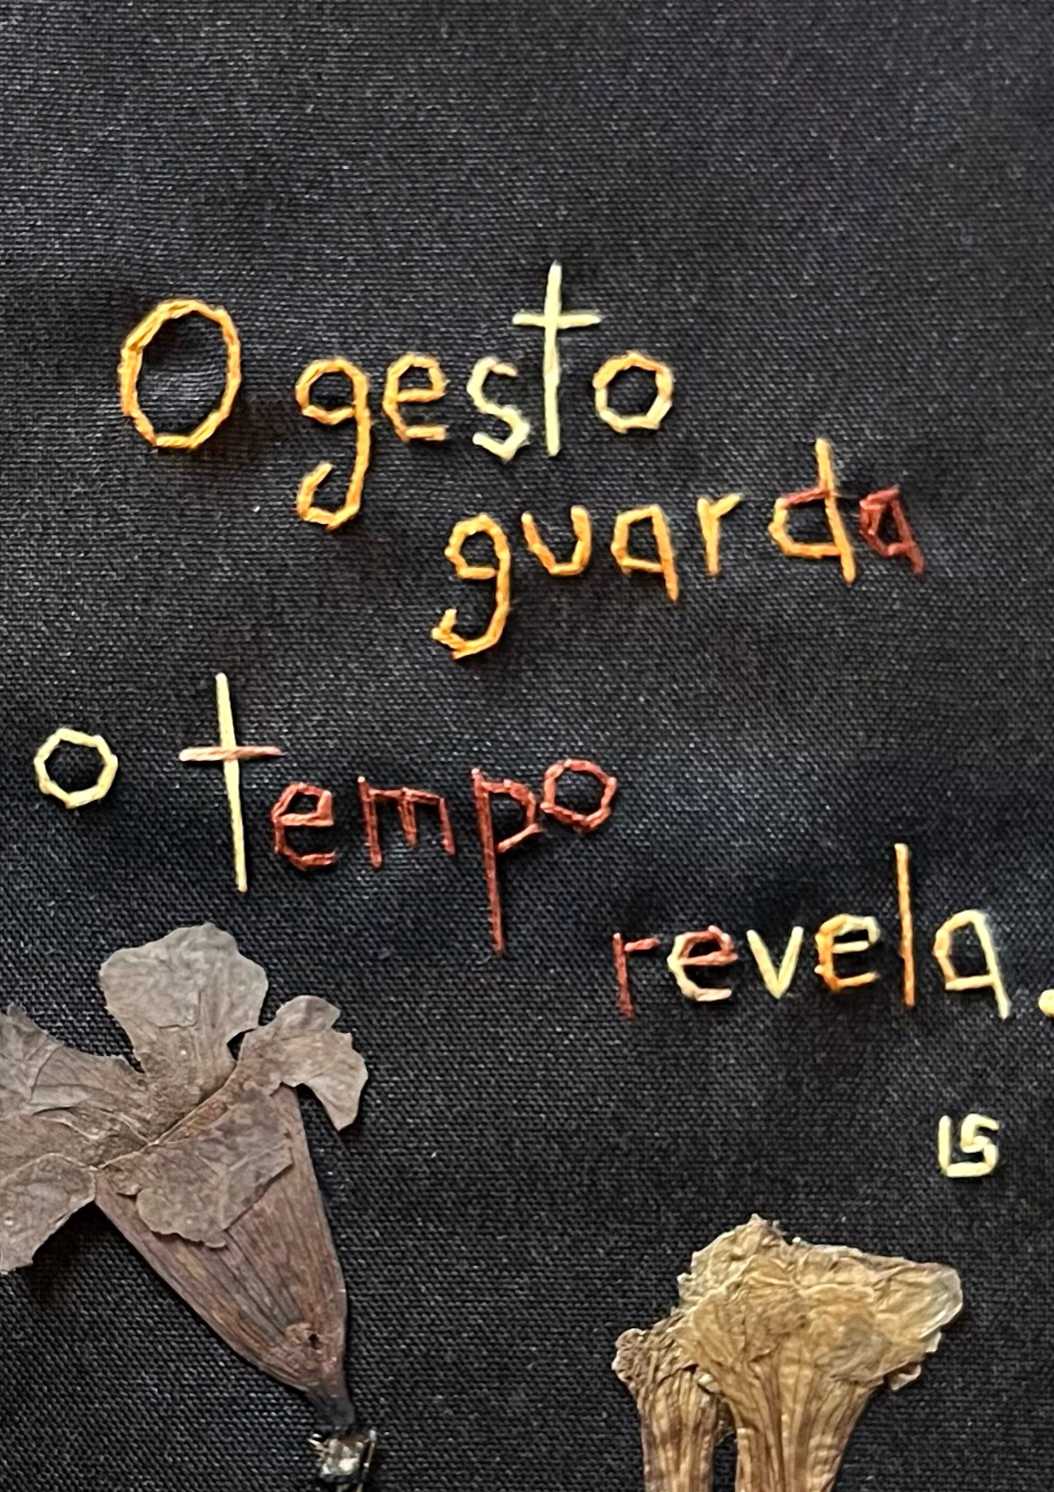 O gesto
guarda
o tempo
revela.
LS